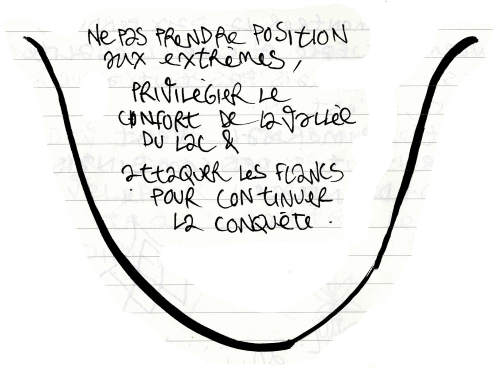 NE PAS PRENDRE POSITION
aux EXTRÊMES,
PRIVILÉGIER LE
CONFORT DE LA VALLÉE
DU LAC &
ATTAQUER LES FLANCS
POUR CONTINUER
LA CONQUÊTE.